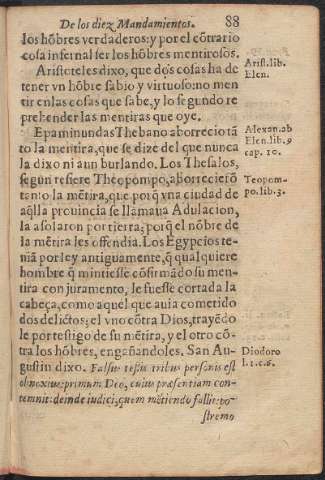 De los diez Mandamientos. 88
los hõbres verdaderos: y por el cõtrario
cosa infernal ser los hõbres mentirosos.
Aristoteles dixo, que dos cosas ha de
tener vn hõbre sabio y virtuoso: no men
tir en las cosas que sabe, y lo segundo re
prehender las mentiras que oye.
Epaminundas Thebano aborrecio tã
to la mentira, que se dize del que nunca
la dixo ni aun burlando. Los Thesalos,
segun refiere Theopompo, aborrecierõ
tanto la mẽtira, que porq̃ vna ciudad de
aq̃lla prouincia se llamaua Adulacion,
la asolaron por tierra; porq̃ el nõbre de
la mẽtira les offendia. Los Egypcios te-
niã por ley antiguamente, q̃ qualquiere
hombre q̃ mintiesse cõfirmãdo su men-
tira con juramento, le fuesse cortada la
cabeça, como aquel que auia cometido
dos delictos; el vno cõtra Dios, trayẽdo
le por testigo de su mẽtira, y el otro cõ-
tra los hõbres, engañandoles. San Au-
gustin dixo. Falsus testis tribus personis est
obnoxius: primum Deo, cuius præsentiam con-
temnit: deinde iudici, quem mẽtiendo fallit: po-
stremo
Arist. lib.
Elen.
Alexan. ab
Elen. lib. 9
cap. 10.
Teopom-
po. lib. 3.
Diodoro
l. 1. c. 6.